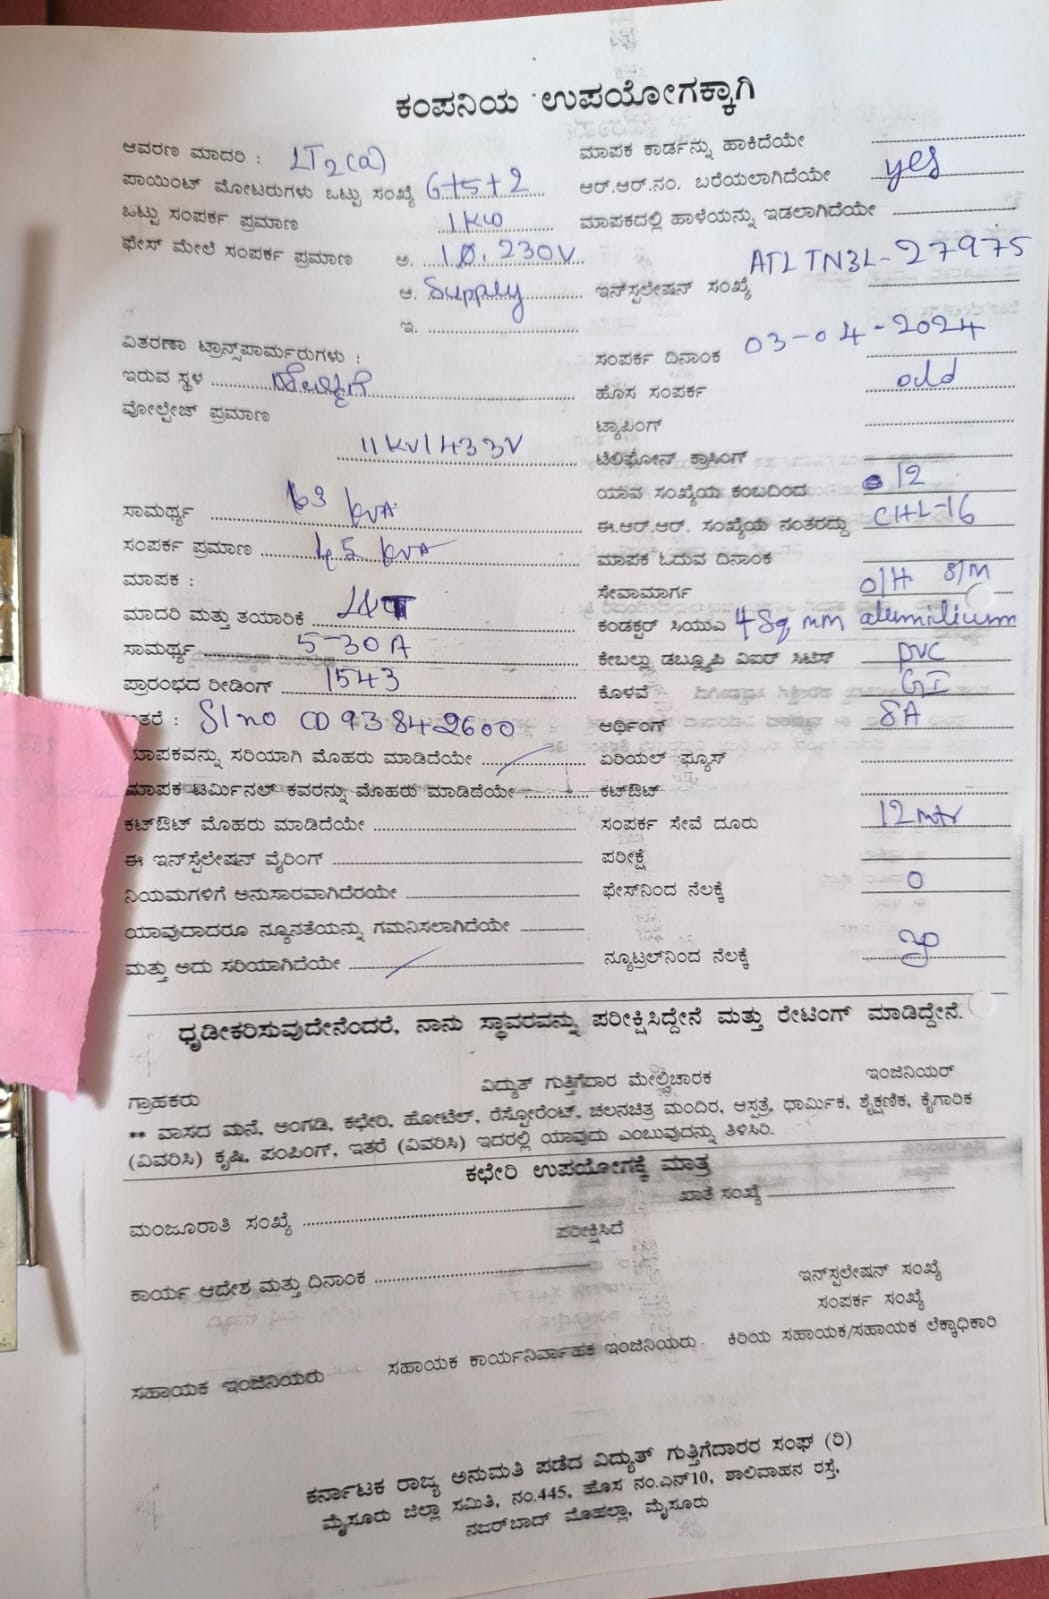 ಕಂಪನಿಯ ಉಪಯೋಗಕ್ಕಾಗಿ
ಆವರಣ ಮಾದರಿ : LT2(a)
ಪಾಯಿಂಟ್ ಮೋಟರುಗಳು ಒಟ್ಟು ಸಂಖ್ಯೆ 6+5+2
ಒಟ್ಟು ಸಂಪರ್ಕ ಪ್ರಮಾಣ 1 KW
ಫೇಸ್ ಮೇಲೆ ಸಂಪರ್ಕ ಪ್ರಮಾಣ ಅ. 1Ø. 230V
ಆ. Supply
ಇ.
ವಿತರಣಾ ಟ್ರಾನ್ಸ್‌ಫಾರ್ಮರುಗಳು :
ಇರುವ ಸ್ಥಳ
ವೋಲ್ಟೇಜ್ ಪ್ರಮಾಣ
11KV/433V
ಸಾಮರ್ಥ್ಯ 63 kVA
ಸಂಪರ್ಕ ಪ್ರಮಾಣ 45 kVA
ಮಾಪಕ :
ಮಾದರಿ ಮತ್ತು ತಯಾರಿಕೆ L&T
ಸಾಮರ್ಥ್ಯ 5-30A
ಪ್ರಾರಂಭದ ರೀಡಿಂಗ್ 1543
ತರೆ : Sl no CD 93842600
ಮಾಪಕವನ್ನು ಸರಿಯಾಗಿ ಮೊಹರು ಮಾಡಿದೆಯೇ
ಮಾಪಕ ಟರ್ಮಿನಲ್ ಕವರನ್ನು ಮೊಹರು ಮಾಡಿದೆಯೇ
ಕಟ್‌ಔಟ್ ಮೊಹರು ಮಾಡಿದೆಯೇ
ಈ ಇನ್‌ಸ್ಪೆಲೇಷನ್ ವೈರಿಂಗ್
ನಿಯಮಗಳಿಗೆ ಅನುಸಾರವಾಗಿದೆರಯೇ
ಯಾವುದಾದರೂ ನ್ಯೂನತೆಯನ್ನು ಗಮನಿಸಲಾಗಿದೆಯೇ
ಮತ್ತು ಅದು ಸರಿಯಾಗಿದೆಯೇ
ಮಾಪಕ ಕಾರ್ಡನ್ನು ಹಾಕಿದೆಯೇ
ಆರ್.ಆರ್.ನಂ. ಬರೆಯಲಾಗಿದೆಯೇ yes
ಮಾಪಕದಲ್ಲಿ ಹಾಳೆಯನ್ನು ಇಡಲಾಗಿದೆಯೇ
ATLTN3L-27975
ಇನ್‌ಸ್ಪಲೇಷನ್ ಸಂಖ್ಯೆ
ಸಂಪರ್ಕ ದಿನಾಂಕ 03-04-2024
ಹೊಸ ಸಂಪರ್ಕ old
ಟ್ಯಾಪಿಂಗ್
ಟೆಲಿಫೋನ್ ಕ್ರಾಸಿಂಗ್
ಯಾವ ಸಂಖ್ಯೆಯ ಕಂಬದಿಂದ 12
ಈ.ಆರ್.ಆರ್. ಸಂಖ್ಯೆಯ ನಂತರದ್ದು CHL-16
ಮಾಪಕ ಓದುವ ದಿನಾಂಕ
ಸೇವಾಮಾರ್ಗ O/H S/M
ಕಂಡಕ್ಟರ್ ಸಿಯುಎ 4 Sq mm alumilium
ಕೇಬಲ್ಲು ಡಬ್ಲ್ಯೂಪಿ ವಿಐರ್ ಸಿಟಿಸ್ PVC
ಕೊಳವೆ GI
ಆರ್ಥಿಂಗ್ 8A
ಏರಿಯಲ್ ಫ್ಯೂಸ್
ಕಟ್‌ಔಟ್
ಸಂಪರ್ಕ ಸೇವೆ ದೂರು 12 mtr
ಪರೀಕ್ಷೆ
ಫೇಸ್‌ನಿಂದ ನೆಲಕ್ಕೆ 0
ನ್ಯೂಟ್ರಲ್‌ನಿಂದ ನೆಲಕ್ಕೆ
ಧೃಡೀಕರಿಸುವುದೇನೆಂದರೆ, ನಾನು ಸ್ಥಾವರವನ್ನು ಪರೀಕ್ಷಿಸಿದ್ದೇನೆ ಮತ್ತು ರೇಟಿಂಗ್ ಮಾಡಿದ್ದೇನೆ.
ಗ್ರಾಹಕರು ವಿದ್ಯುತ್ ಗುತ್ತಿಗೆದಾರ ಮೇಲ್ವಿಚಾರಕ ಇಂಜಿನಿಯರ್
** ವಾಸದ ಮನೆ, ಅಂಗಡಿ, ಕಛೇರಿ, ಹೋಟೆಲ್, ರೆಸ್ಟೋರೆಂಟ್, ಚಲನಚಿತ್ರ ಮಂದಿರ, ಆಸ್ಪತ್ರೆ, ಧಾರ್ಮಿಕ, ಶೈಕ್ಷಣಿಕ, ಕೈಗಾರಿಕ
(ವಿವರಿಸಿ) ಕೃಷಿ, ಪಂಪಿಂಗ್, ಇತರೆ (ವಿವರಿಸಿ) ಇದರಲ್ಲಿ ಯಾವುದು ಎಂಬುವುದನ್ನು ತಿಳಿಸಿರಿ.
ಕಛೇರಿ ಉಪಯೋಗಕ್ಕೆ ಮಾತ್ರ
ಮಂಜೂರಾತಿ ಸಂಖ್ಯೆ ಖಾತೆ ಸಂಖ್ಯೆ
ಪರೀಕ್ಷಿಸಿದೆ
ಕಾರ್ಯ ಆದೇಶ ಮತ್ತು ದಿನಾಂಕ
ಇನ್‌ಸ್ಪಲೇಷನ್ ಸಂಖ್ಯೆ
ಸಂಪರ್ಕ ಸಂಖ್ಯೆ
ಸಹಾಯಕ ಇಂಜಿನಿಯರು ಸಹಾಯಕ ಕಾರ್ಯನಿರ್ವಾಹಕ ಇಂಜಿನಿಯರು ಕಿರಿಯ ಸಹಾಯಕ/ಸಹಾಯಕ ಲೆಕ್ಕಾಧಿಕಾರಿ
ಕರ್ನಾಟಕ ರಾಜ್ಯ ಅನುಮತಿ ಪಡೆದ ವಿದ್ಯುತ್ ಗುತ್ತಿಗೆದಾರರ ಸಂಘ (ರಿ)
ಮೈಸೂರು ಜಿಲ್ಲಾ ಸಮಿತಿ, ನಂ.445, ಹೊಸ ನಂ.ಎನ್10, ಶಾಲಿವಾಹನ ರಸ್ತೆ,
ನಜರ್‌ಬಾದ್ ಮೊಹಲ್ಲಾ, ಮೈಸೂರು